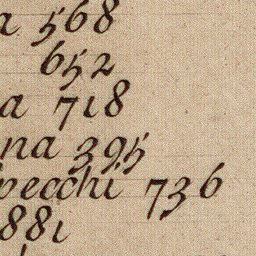 a 568
652
a 718
na 395
pecchi 736
881